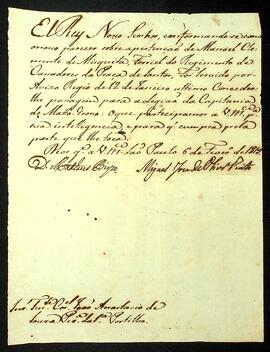 El Rey Nosso Senhor, conformando-se com
o nosso parecer sobre a pertenção de Manoel Cle-
mente de Mesquita, Coronel do Regimento de
Cassadores da Praça de Santos: Foi servido por
Avizo Regio de 12 de Janeiro ultimo Conceder-
lhe passagem para a Legião da Capitania
de Matto Grosso: o que participamos a V.
intelligencia, e para q. cumpra pela
parte que lhe toca.
Deos g.e a V. São Paulo 6 de Fever.o de
D. Matheus Bispo
Miguel
Snr. Ten.te Cor.el José Anastacio de
Portilho.